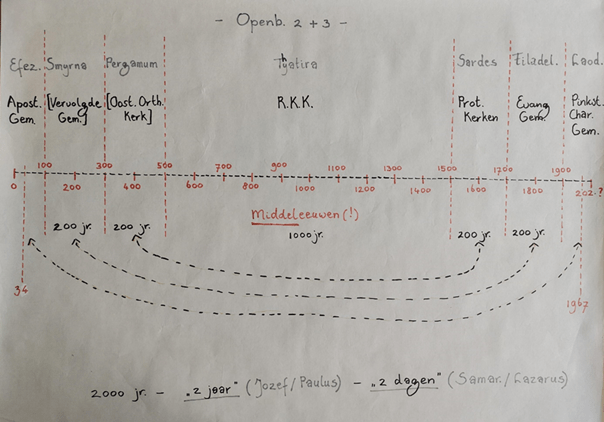 - Openb. 2 + 3 -
Efez. Smyrna Pergamum Thyatira Sardes Filadel. Laod.
Apost. [Vervolgde [Oost. Orth. R.K.K. Prot. Evang. Pinkst.
Gem. Gem.] Kerk] Kerken Gem. Char.
Gem.
100 300 500 700 900 1100 1300 1500 1700 1900
0 200 400 600 800 1000 1200 1400 1600 1800 202.?
Middeleeuwen (!)
200 jr. 200 jr. 1000 jr. 200 jr. 200 jr.
34 1967
2000 jr. - „2 jaar" (Jozef/Paulus) - „2 dagen" (Samar./Lazarus)